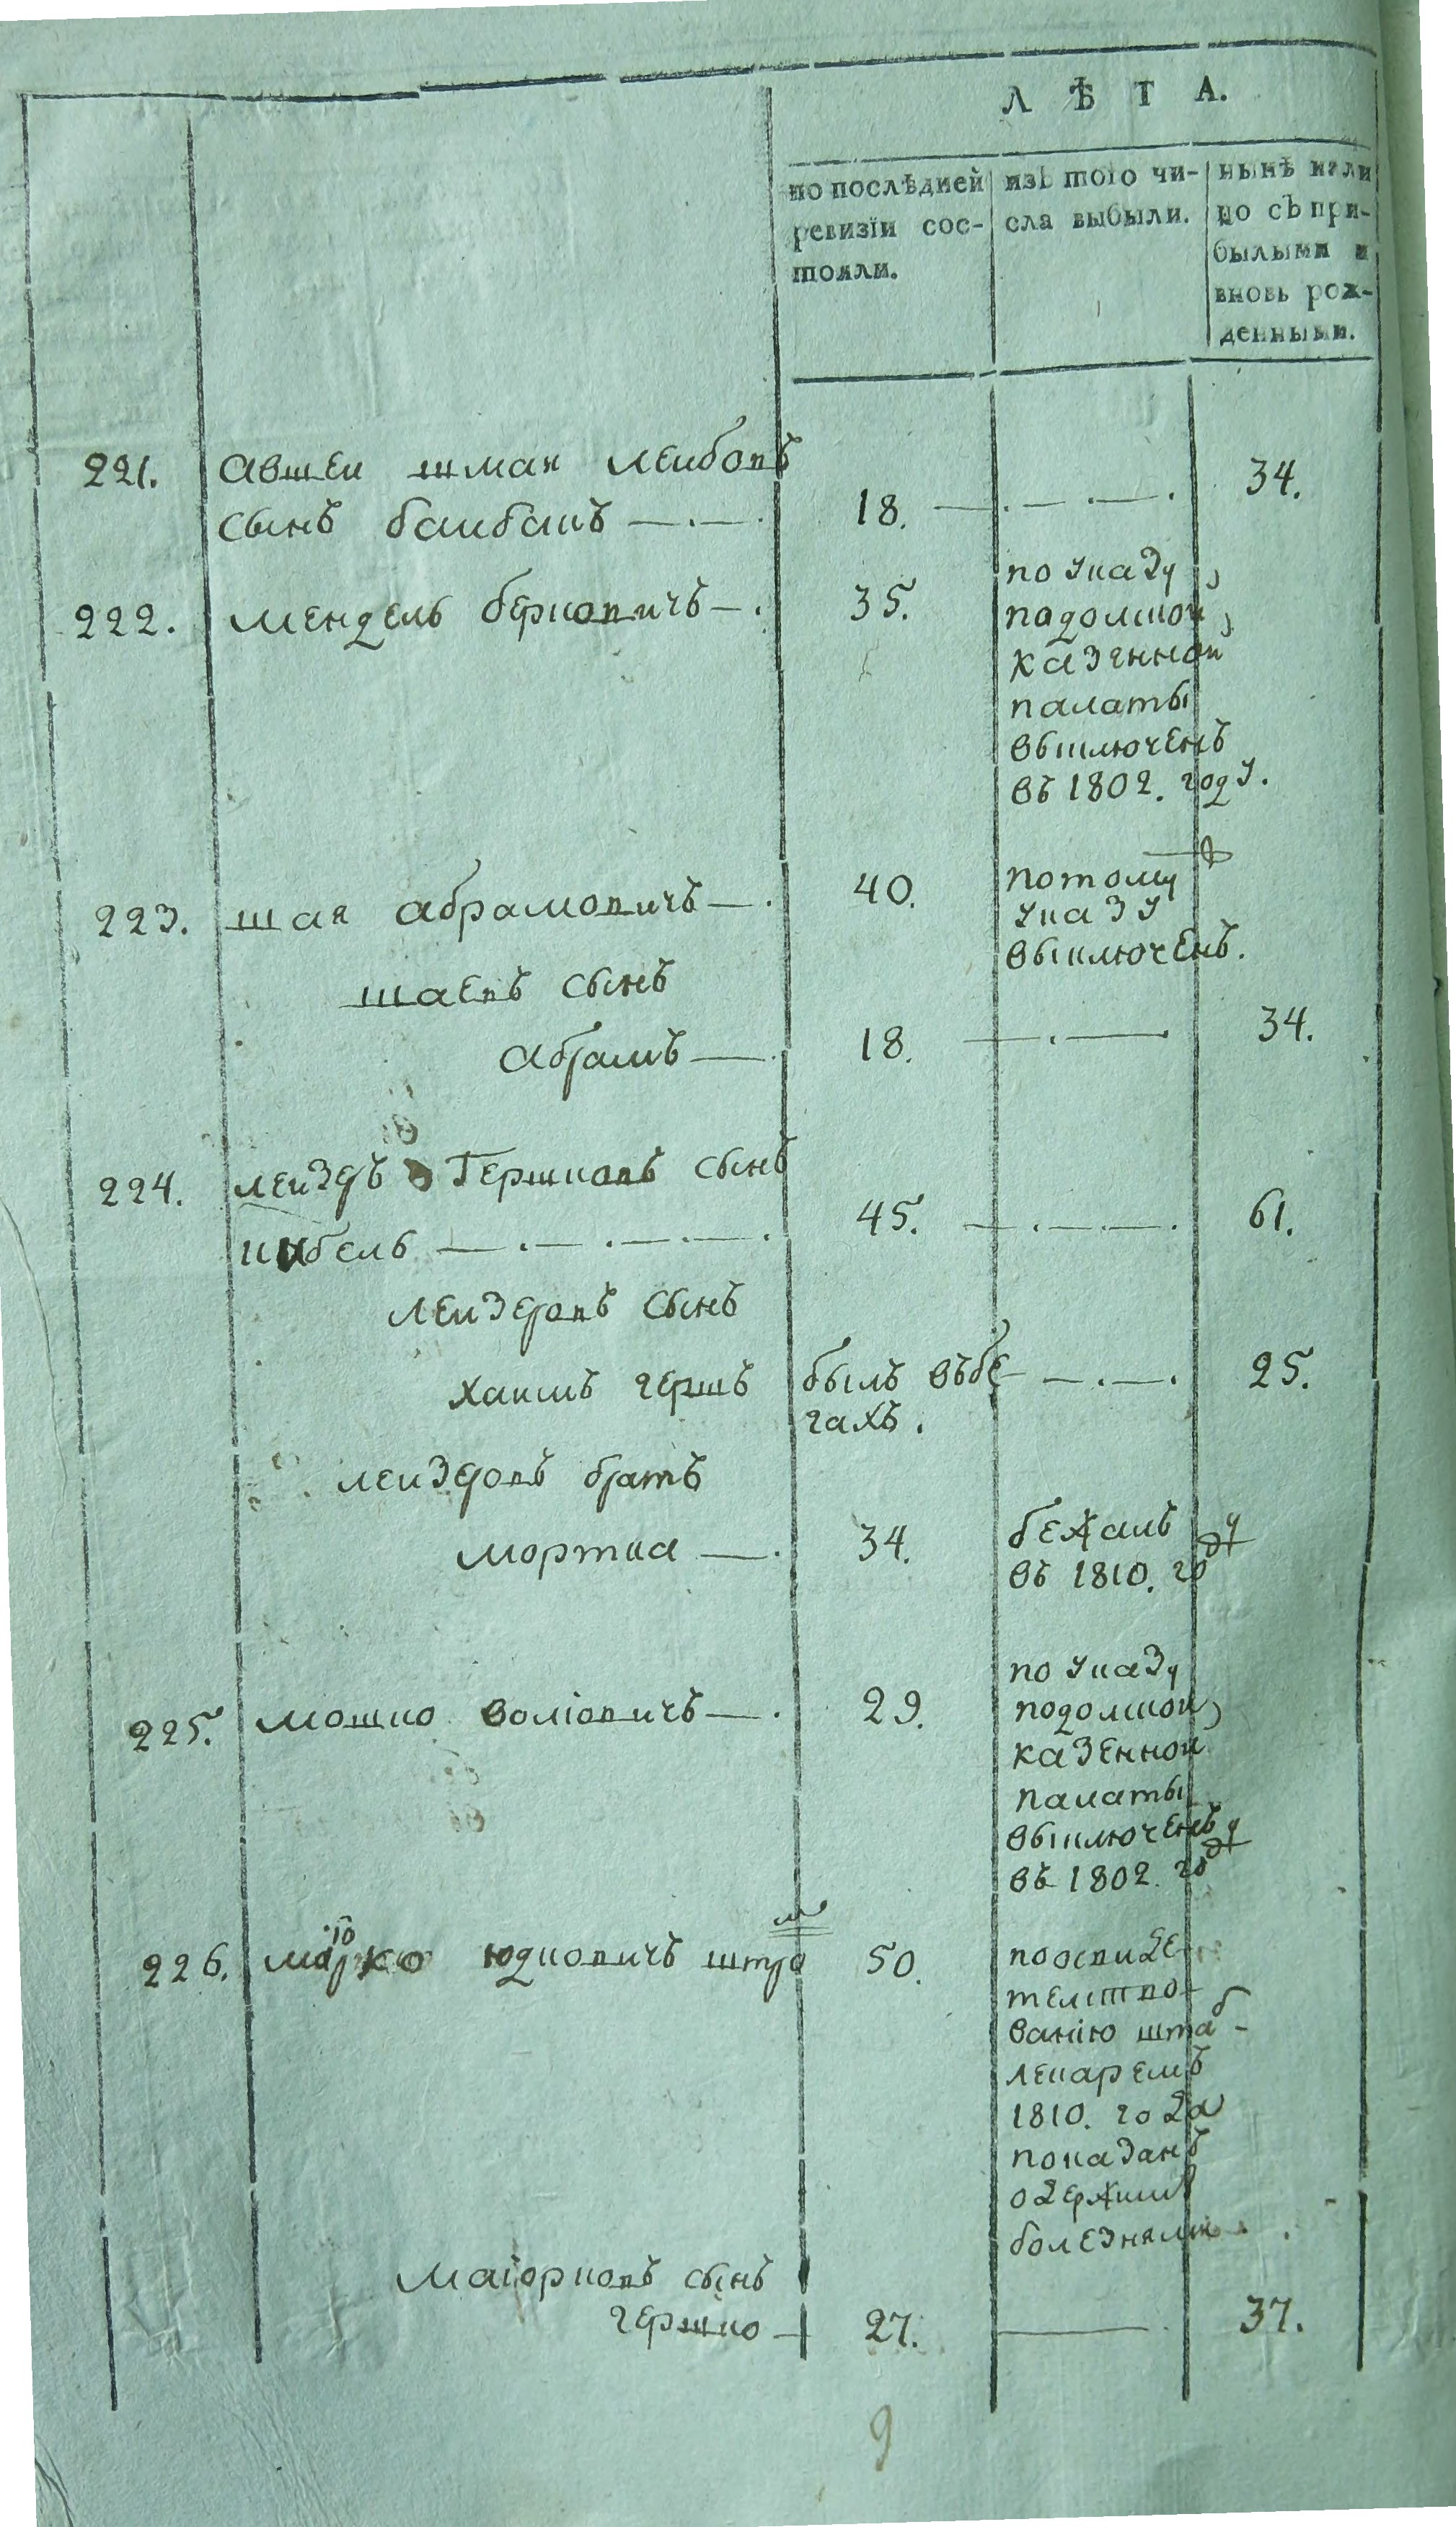 Л Ѣ Т А.
по послѣдней
ревизїи сос-
тояли.
изъ того чи-
сла выбыли.
нынѣ нали
цо съ при-
былыми и
вновь рож-
денными.
221. Авшеи шмая леибовъ
сынъ баибакъ 18. 34.
222. мендель берковичъ 35.
по указу
подолской
казенной
палаты
выключенъ
въ 1802. году.
223. шая абрамовичъ 40.
потому
указу
выключенъ.
шаевъ сынъ
абрамъ 18. 34.
224. леизеръ Гершковъ сынъ
кибель 45. 61.
леизеровъ сынъ
хаимъ гершъ былъ въ бе
гахъ. 25.
леизеровъ братъ
мортка 34.
бежалъ
въ 1810. году
225. мошко волїовичъ 29.
по указу
подолской
казенной
палаты
выключенъ
въ 1802. году
226. маїорко юдковичъ штрам 50.
по осведе
телство
ванїю штаб-
лекаремъ
1810. года
показанъ
одержим
болезнями.
маїорковъ сынъ
гершко 27. 37.
9